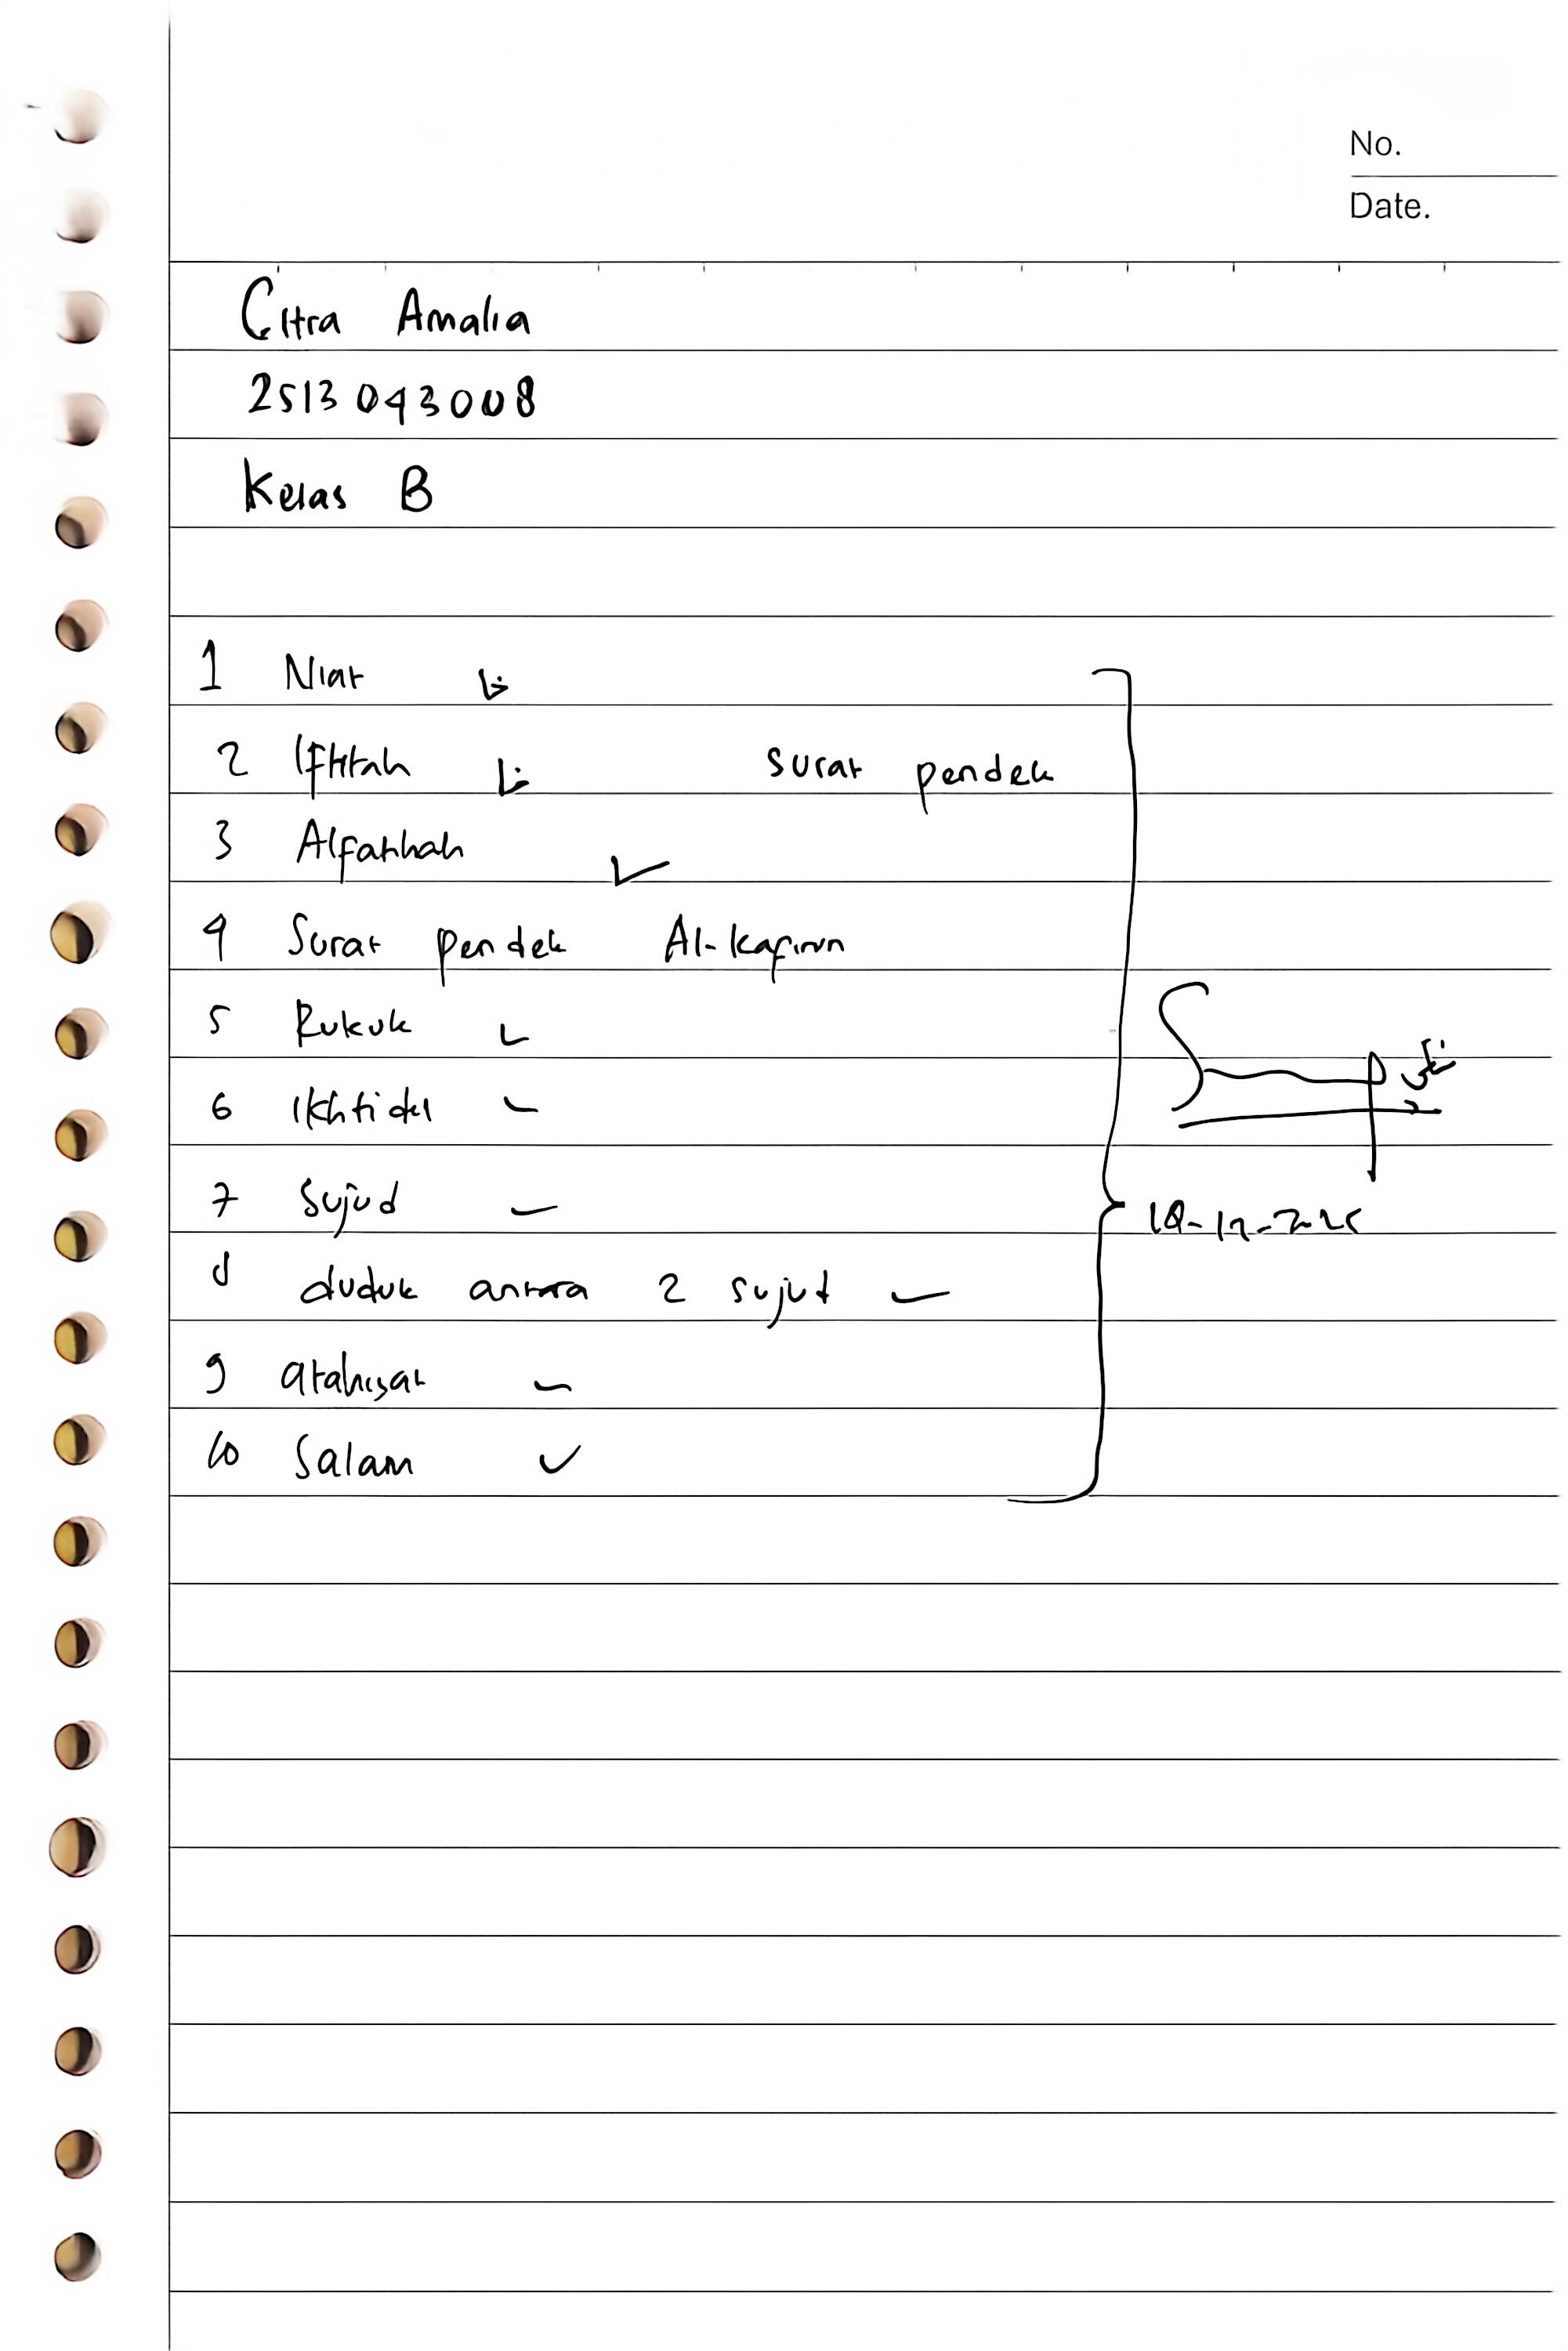 No.
Date.
Citra Amalia
2513043008
Kelas B
1 Niat
2 Iftitah surat pendek
3 Alfatihah
4 Surat pendek Al-kafirun
5 Rukuk
6 Ikhtidal
7 Sujud
8 duduk antara 2 sujud
9 atahiyat
10 Salam